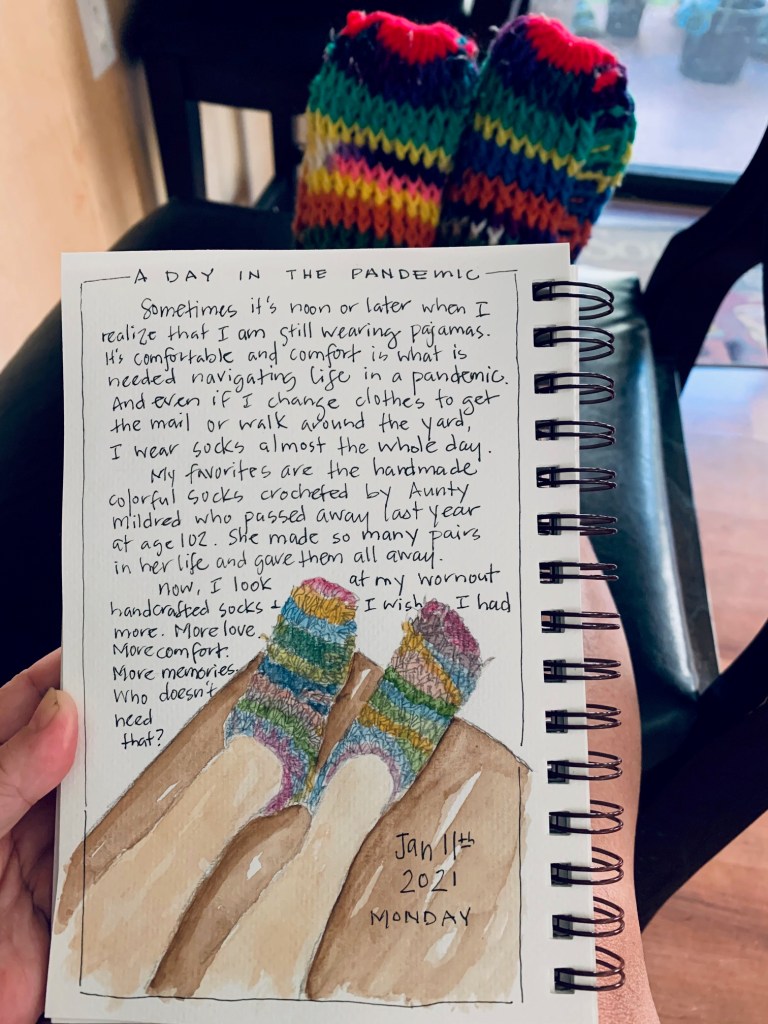 A DAY IN THE PANDEMIC
Sometimes it's noon or later when I
realize that I am still wearing pajamas.
It's comfortable and comfort is what is
needed navigating life in a pandemic.
And even if I change clothes to get
the mail or walk around the yard,
I wear socks almost the whole day.
My favorites are the handmade
colorful socks crocheted by Aunty
Mildred who passed away last year
at age 102. She made so many pairs
in her life and gave them all away.
Now, I look at my wornout
handcrafted socks + I wish I had
more. More love.
More comfort.
More memories.
Who doesn't
need
that?
Jan 11th
2021
MONDAY